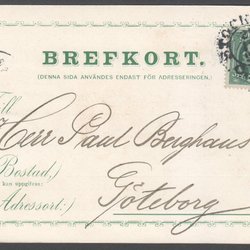 BREFKORT.
(DENNA SIDA ANVÄNDES ENDAST FÖR ADRESSERINGEN.)
Till
Herr Paul Berghaus
(Bostad,)
kan uppgifvas:
Göteborg
(Adressort:)